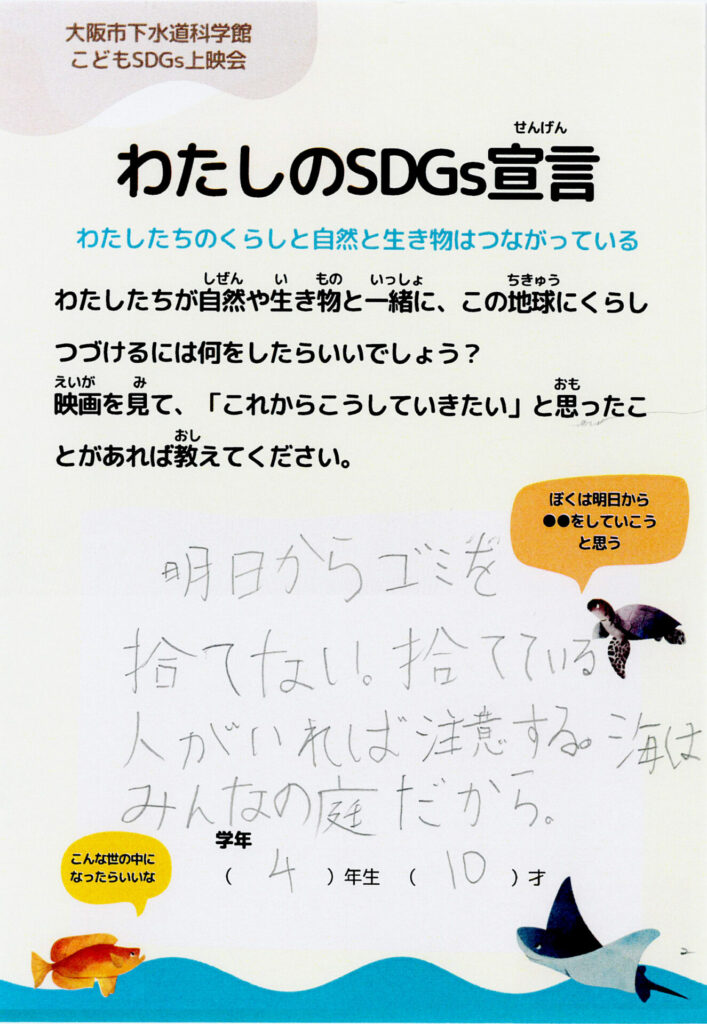 大阪市下水道科学館
こどもSDGs上映会
せんげん
わたしのSDGs宣言
わたしたちのくらしと自然と生き物はつながっている
しぜん い もの いっしょ ちきゅう
わたしたちが自然や生き物と一緒に、この地球にくらし
つづけるには何をしたらいいでしょう？
えいが み おも
映画を見て、「これからこうしていきたい」と思ったこ
おし
とがあれば教えてください。
ぼくは明日から
●●をしていこう
と思う
明日からゴミを
捨てない。捨てている
人がいれば注意する。海は
みんなの庭だから。
学年
（ 4 ）年生 （ 10 ）才
こんな世の中に
なったらいいな